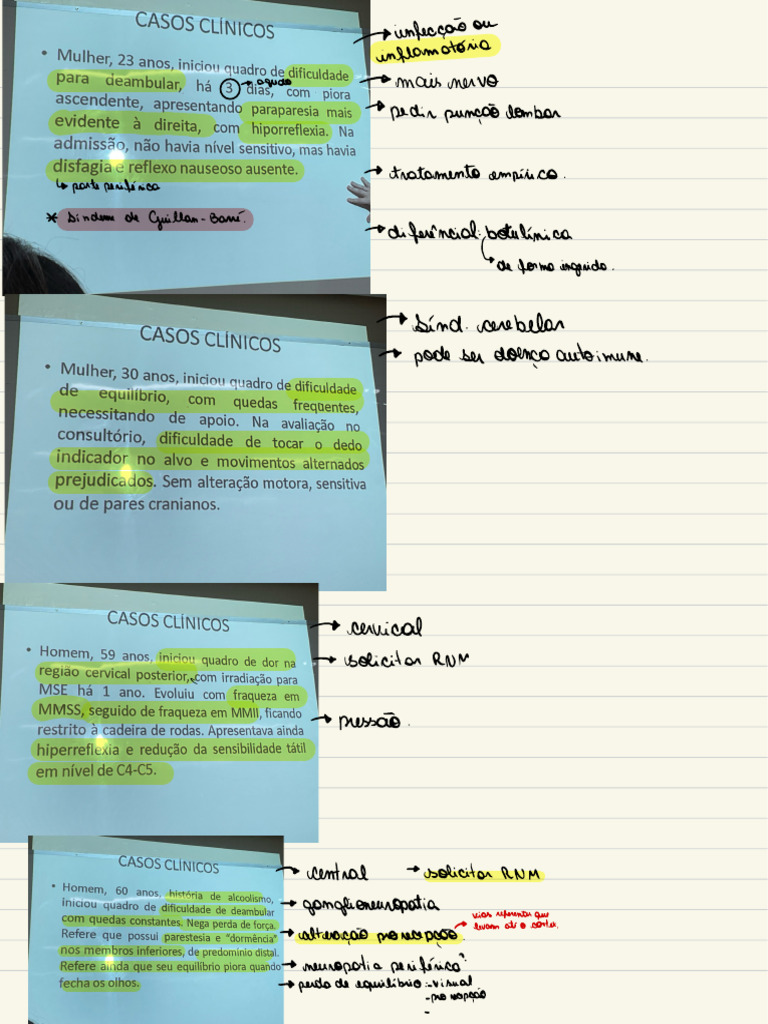 CASOS CLÍNICOS
• Mulher, 23 anos, iniciou quadro de dificuldade
para deambular, há 3 dias, com piora
agudo
ascendente, apresentando paraparesia mais
evidente à direita, com hiporreflexia. Na
admissão, não havia nível sensitivo, mas havia
disfagia e reflexo nauseoso ausente.
↳ parte periférica
* Síndrome de Guillan-Barré.
→ infecção ou
inflamatória
→ mais nervo
→ pedir punção lombar
→ tratamento empírico.
→ diferêncial: botulínica
de forma ingerida.
CASOS CLÍNICOS
• Mulher, 30 anos, iniciou quadro de dificuldade
de equilíbrio, com quedas freqüentes,
necessitando de apoio. Na avaliação no
consultório, dificuldade de tocar o dedo
indicador no alvo e movimentos alternados
prejudicados. Sem alteração motora, sensitiva
ou de pares cranianos.
→ Sínd. cerebelar
→ pode ser doença autoimune.
CASOS CLÍNICOS
• Homem, 59 anos, iniciou quadro de dor na
região cervical posterior, com irradiação para
MSE há 1 ano. Evoluiu com fraqueza em
MMSS, seguido de fraqueza em MMII, ficando
restrito à cadeira de rodas. Apresentava ainda
hiperreflexia e redução da sensibilidade tátil
em nível de C4-C5.
→ cervical
→ solicitar RNM
→ pressão.
CASOS CLÍNICOS
• Homem, 60 anos, história de alcoolismo,
iniciou quadro de dificuldade de deambular
com quedas constantes. Nega perda de força.
Refere que possui parestesia e “dormência”
nos membros inferiores, de predomínio distal.
Refere ainda que seu equilíbrio piora quando
fecha os olhos.
→ central → solicitar RNM
→ ganglioneuropatia
→ alteração
→ vias
levam até o córtex.
→ neuropatia periférica?
→ perda de equilíbrio: -visual
-